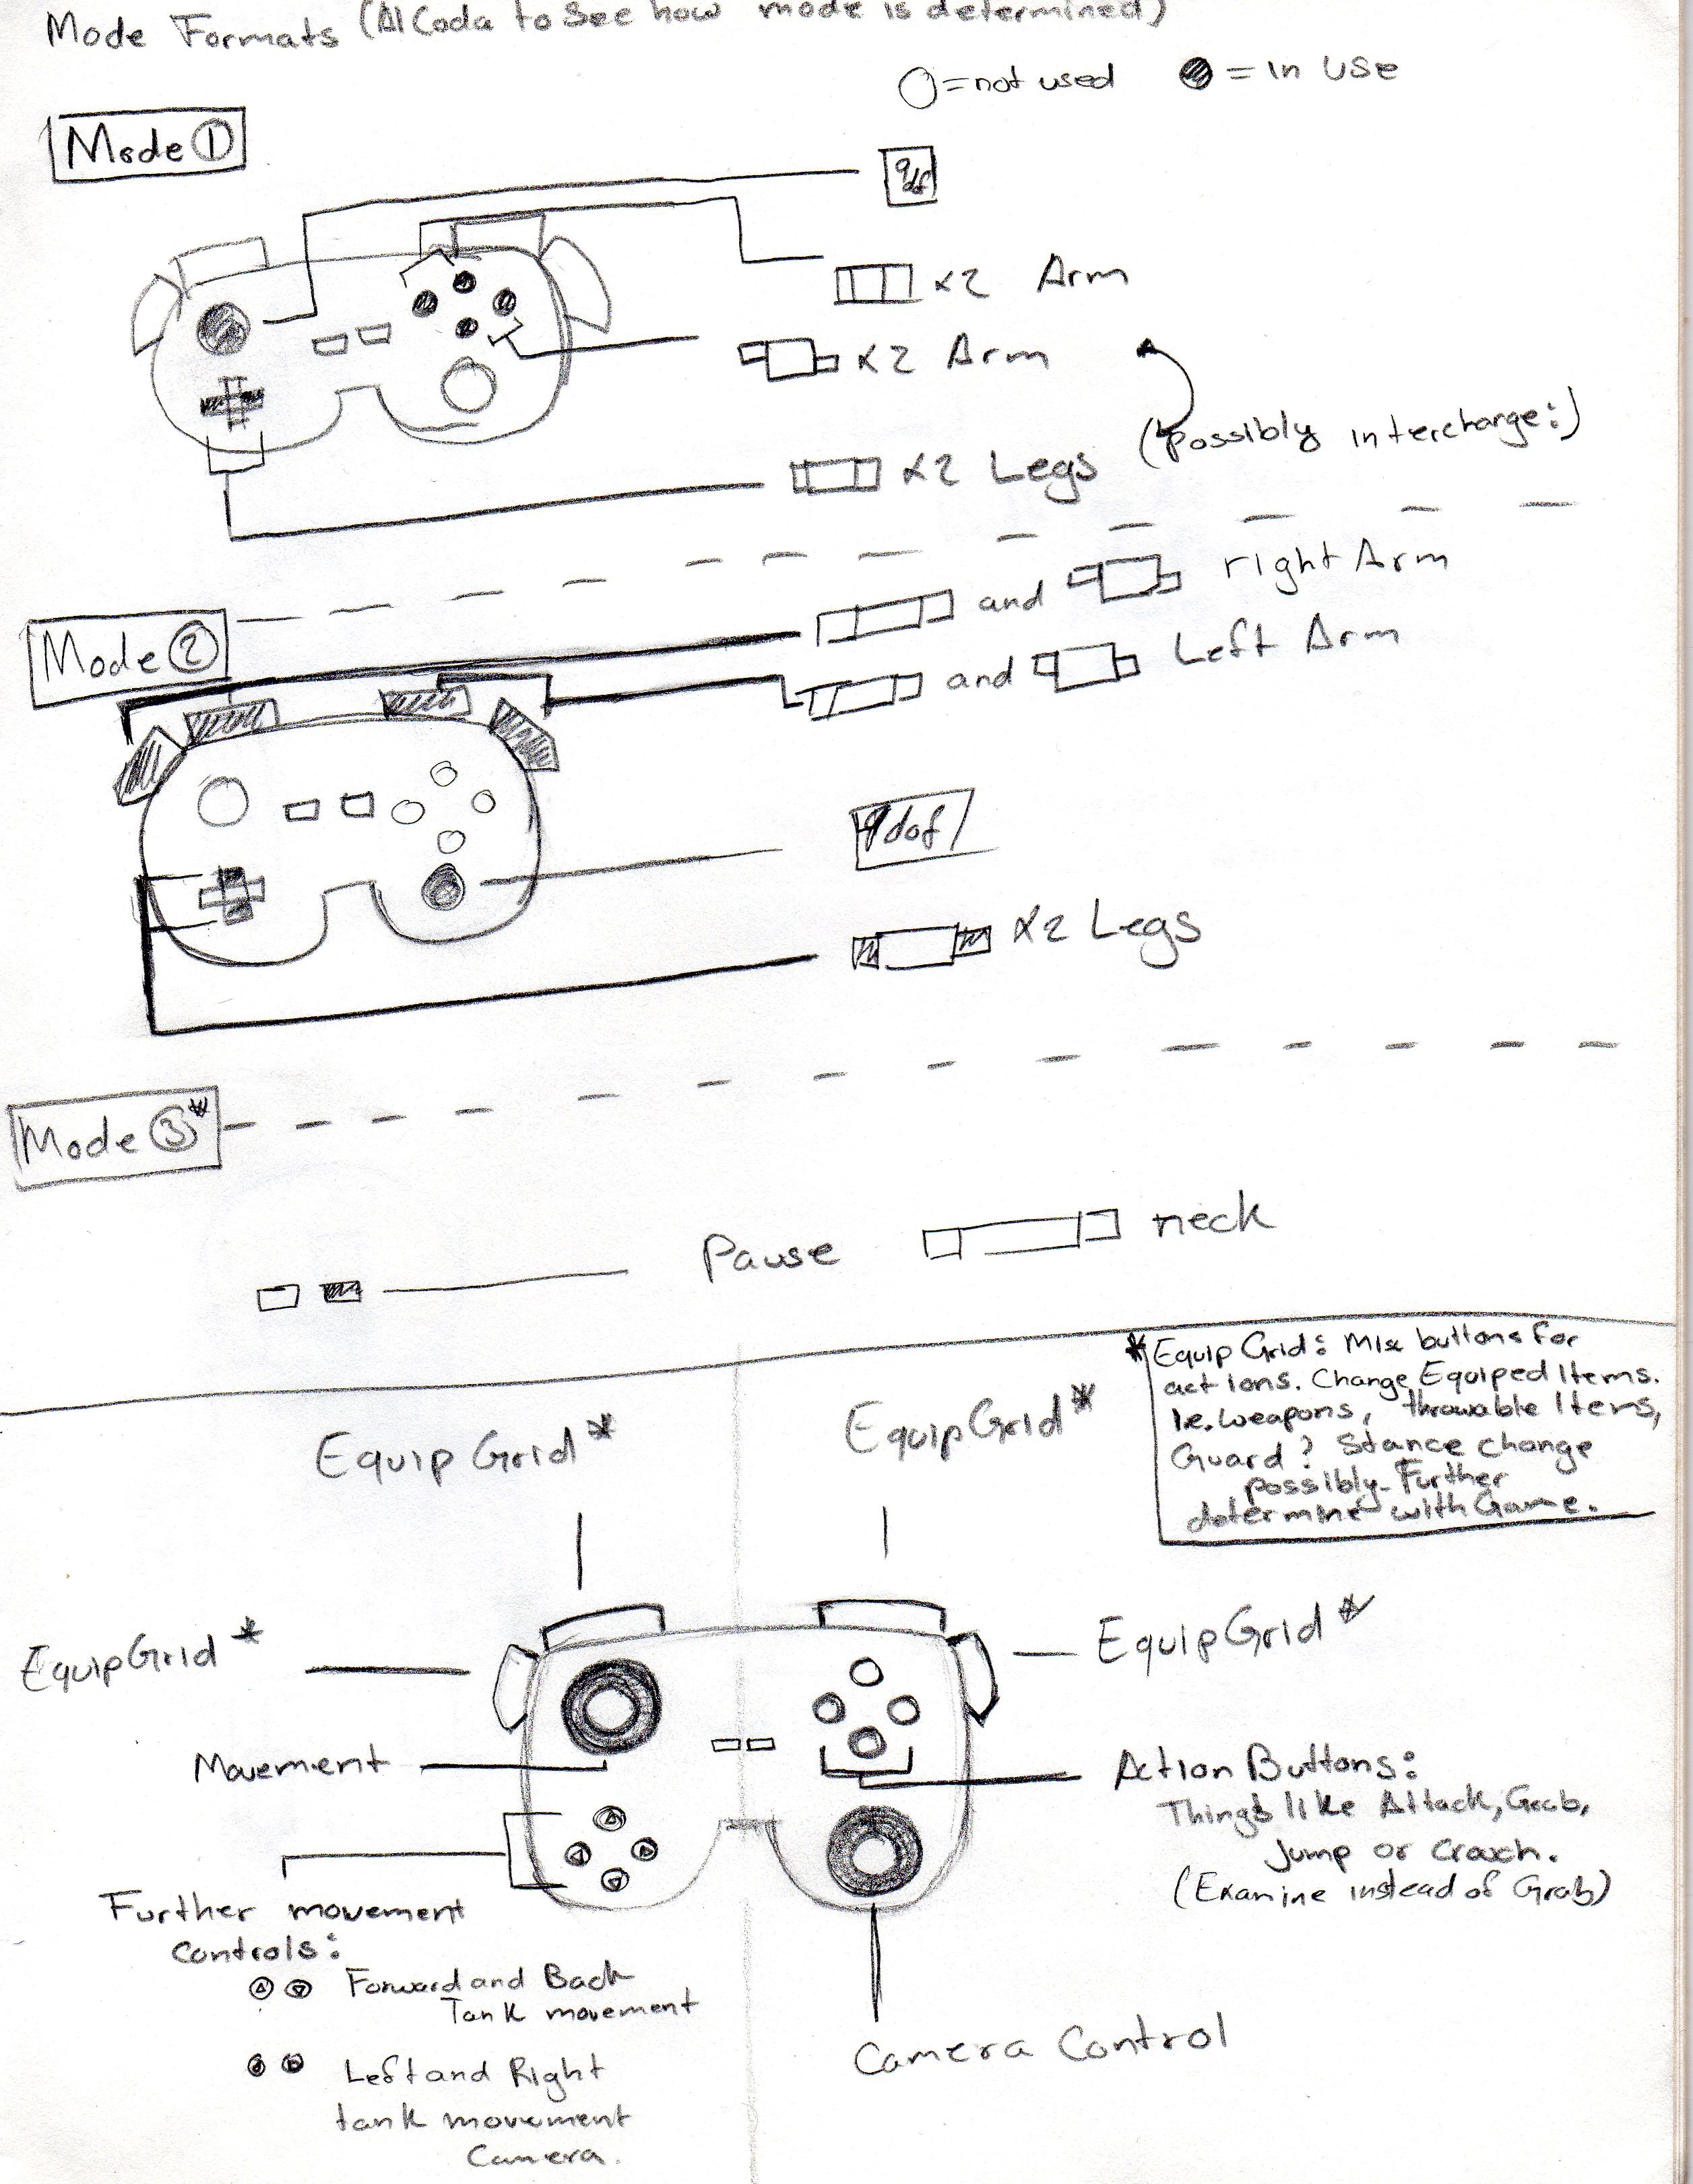 Mode Formats (Al Coda to See how mode is determined)
=not used = in use
Mode 1
9dof
x2 Arm
x2 Arm
(possibly interchange:)
x2 Legs
and right Arm
Mode 2
and Left Arm
9dof
x2 Legs
Mode 3*
Pause neck
*Equip Grid: Mix buttons for
actions. Change Equiped Items.
I.e. Weapons, throwable Items,
Guard? Stance change
possibly. Further
determine with Game.
Equip Grid*
Equip Grid*
Equip Grid*
Equip Grid*
Movement
Action Buttons:
Things like Attack, Grab,
Jump or Crouch.
(Examine instead of Grab)
Further movement
controls:
Forward and Back
Tank movement
Left and Right
tank movement
Camera.
Camera Control